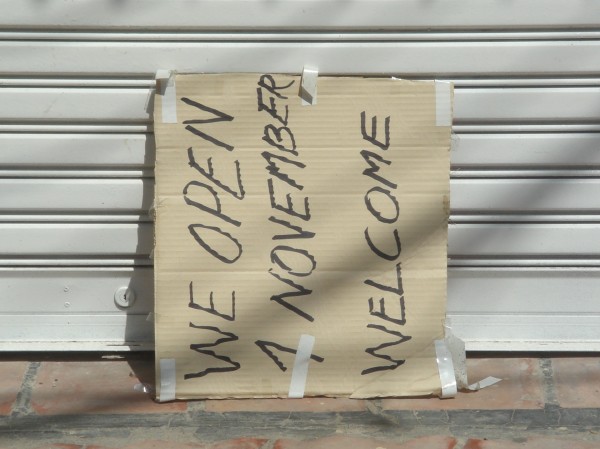 WE OPEN
1 NOVEMBER
WELCOME